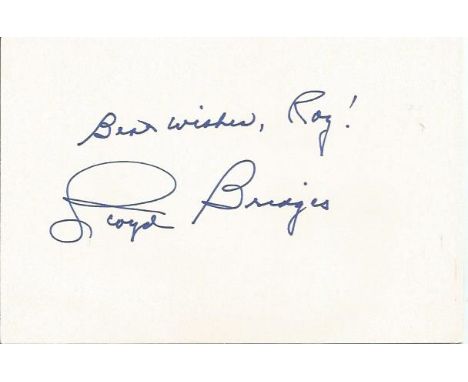 Best wishes, Roy!
Lloyd Bridges